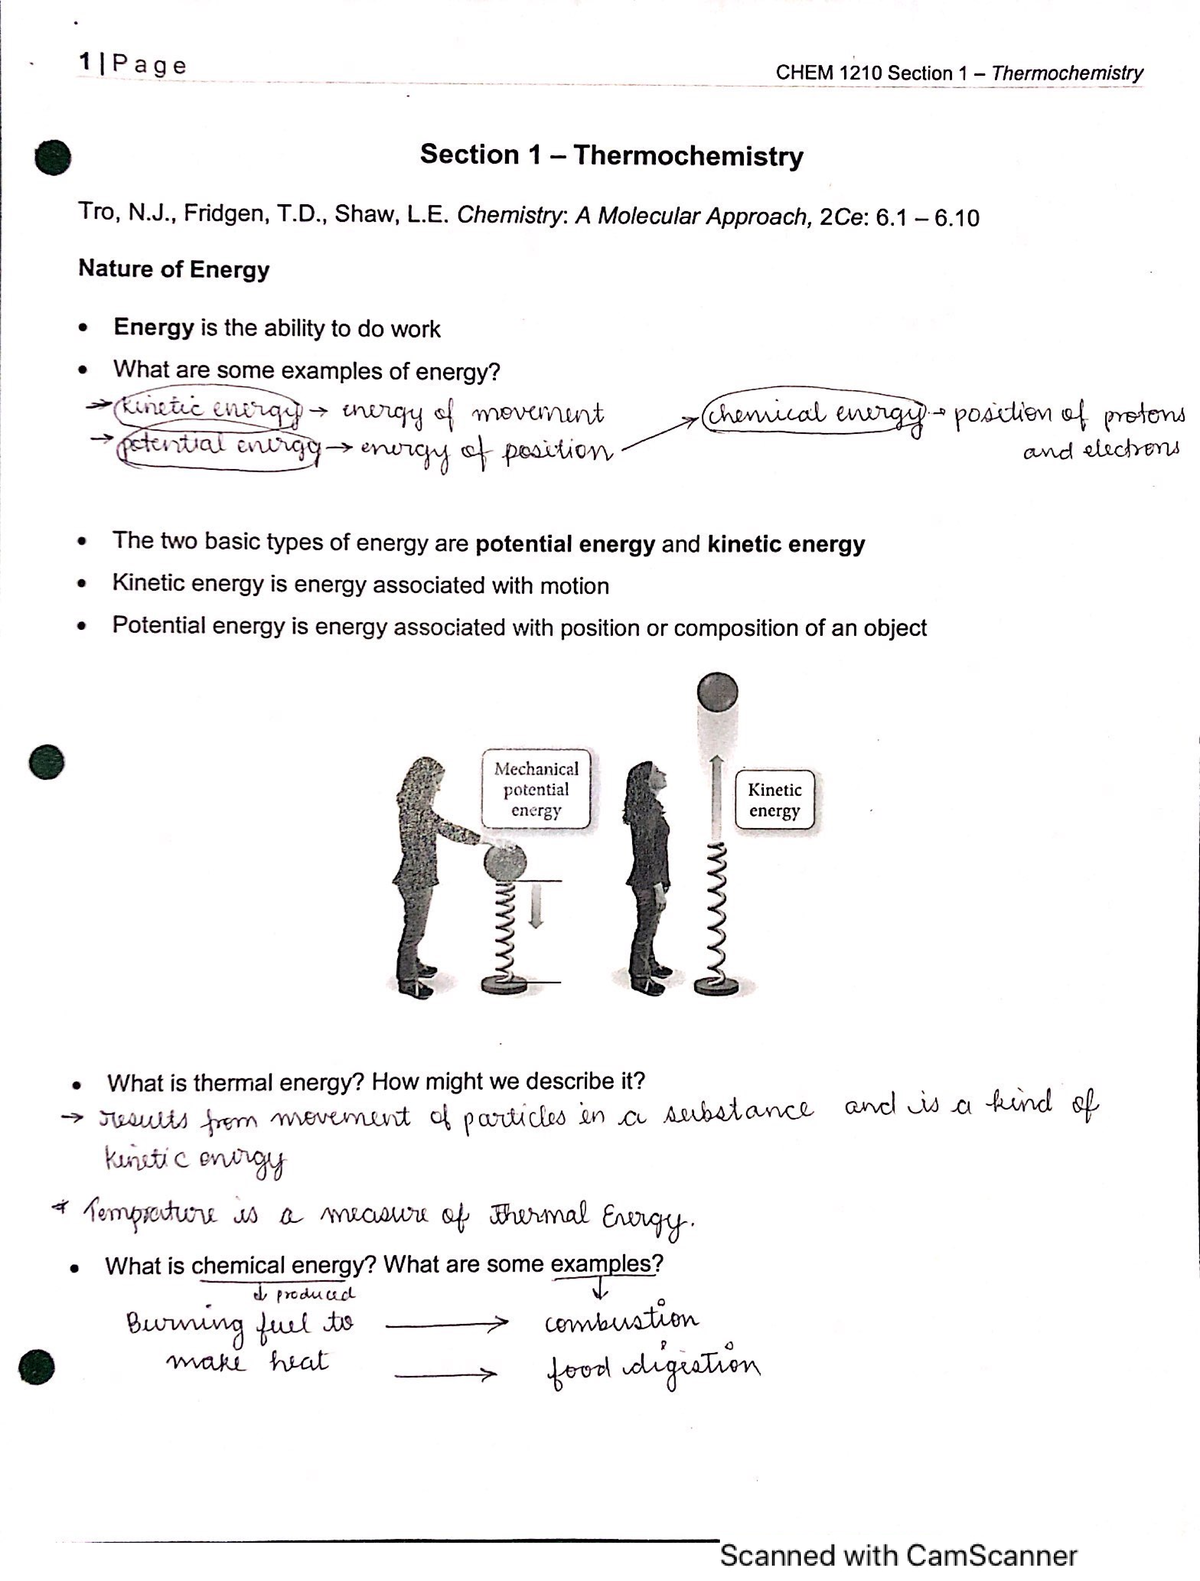 1 | Page
CHEM 1210 Section 1 – Thermochemistry
Section 1 – Thermochemistry
Tro, N.J., Fridgen, T.D., Shaw, L.E. Chemistry: A Molecular Approach, 2Ce: 6.1 – 6.10
Nature of Energy
• Energy is the ability to do work
• What are some examples of energy?
→ kinetic energy → energy of movement
→ potential energy → energy of position
→ chemical energy → position of protons
and electrons
• The two basic types of energy are potential energy and kinetic energy
• Kinetic energy is energy associated with motion
• Potential energy is energy associated with position or composition of an object
Mechanical
potential
energy
Kinetic
energy
• What is thermal energy? How might we describe it?
→ results from movement of particles in a substance and is a kind of
kinetic energy
* Temprature is a measure of Thermal Energy.
• What is chemical energy? What are some examples?
↓ produced ↓
Burning fuel to → combustion
make heat → food digestion
Scanned with CamScanner